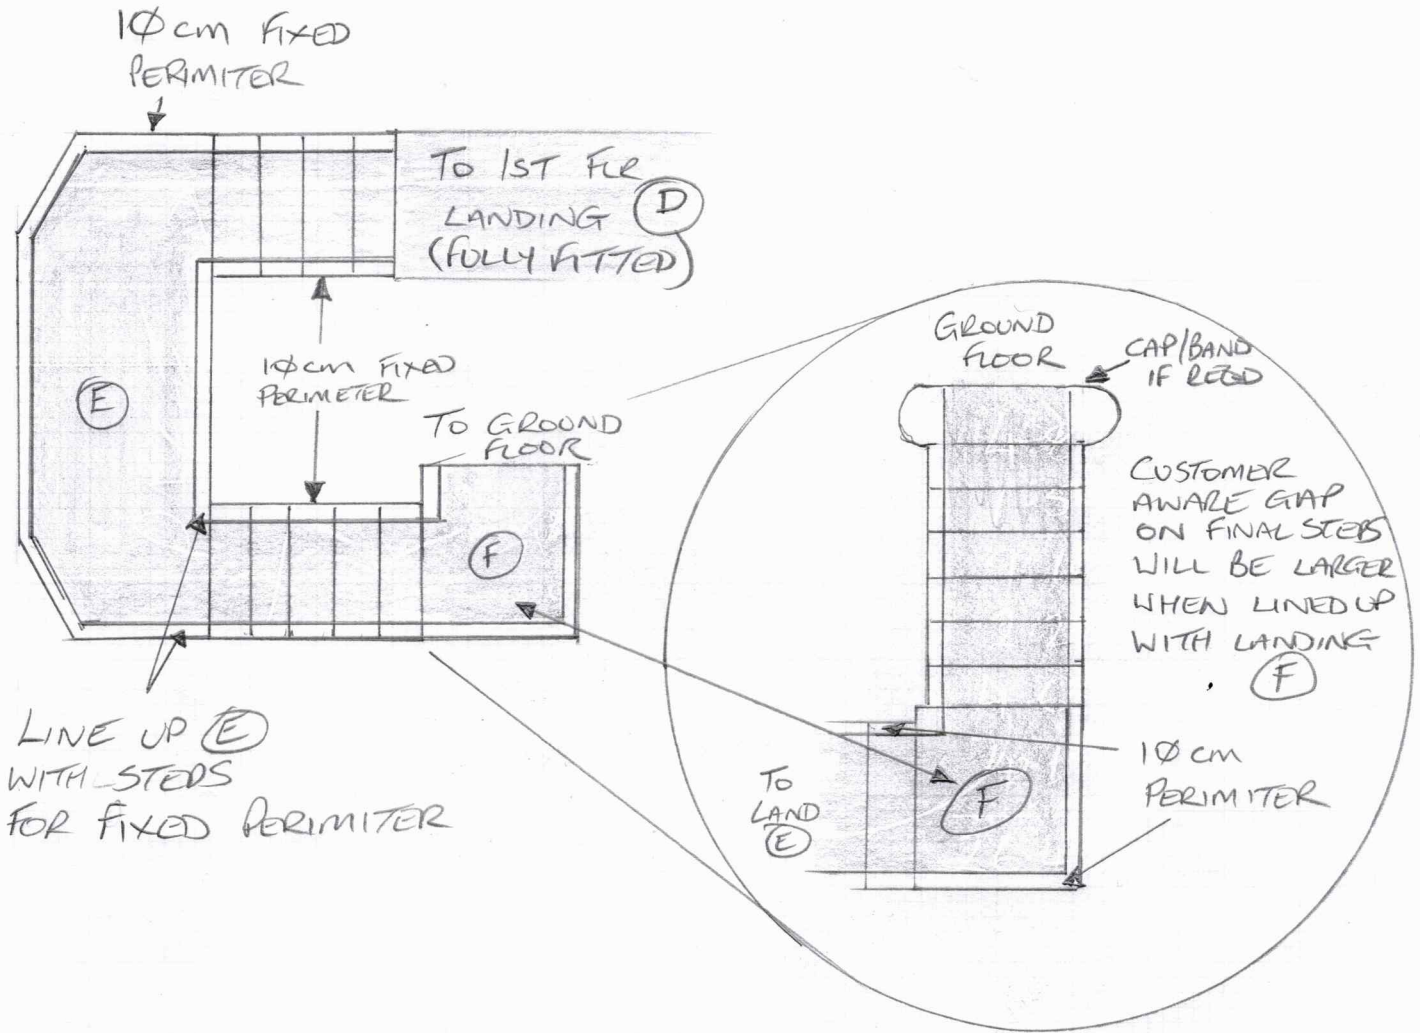 10cm FIXED
PERIMITER
TO 1ST FLR
LANDING D
(FULLY FITTED)
10cm FIXED
PERIMETER
E
TO GROUND
FLOOR
F
LINE UP E
WITH STEPS
FOR FIXED PERIMITER
GROUND
FLOOR
CAP/BAND
IF REQD
CUSTOMER
AWARE GAP
ON FINAL STEPS
WILL BE LARGER
WHEN LINED UP
WITH LANDING
F
10cm
PERIMITER
TO
LAND
E
F